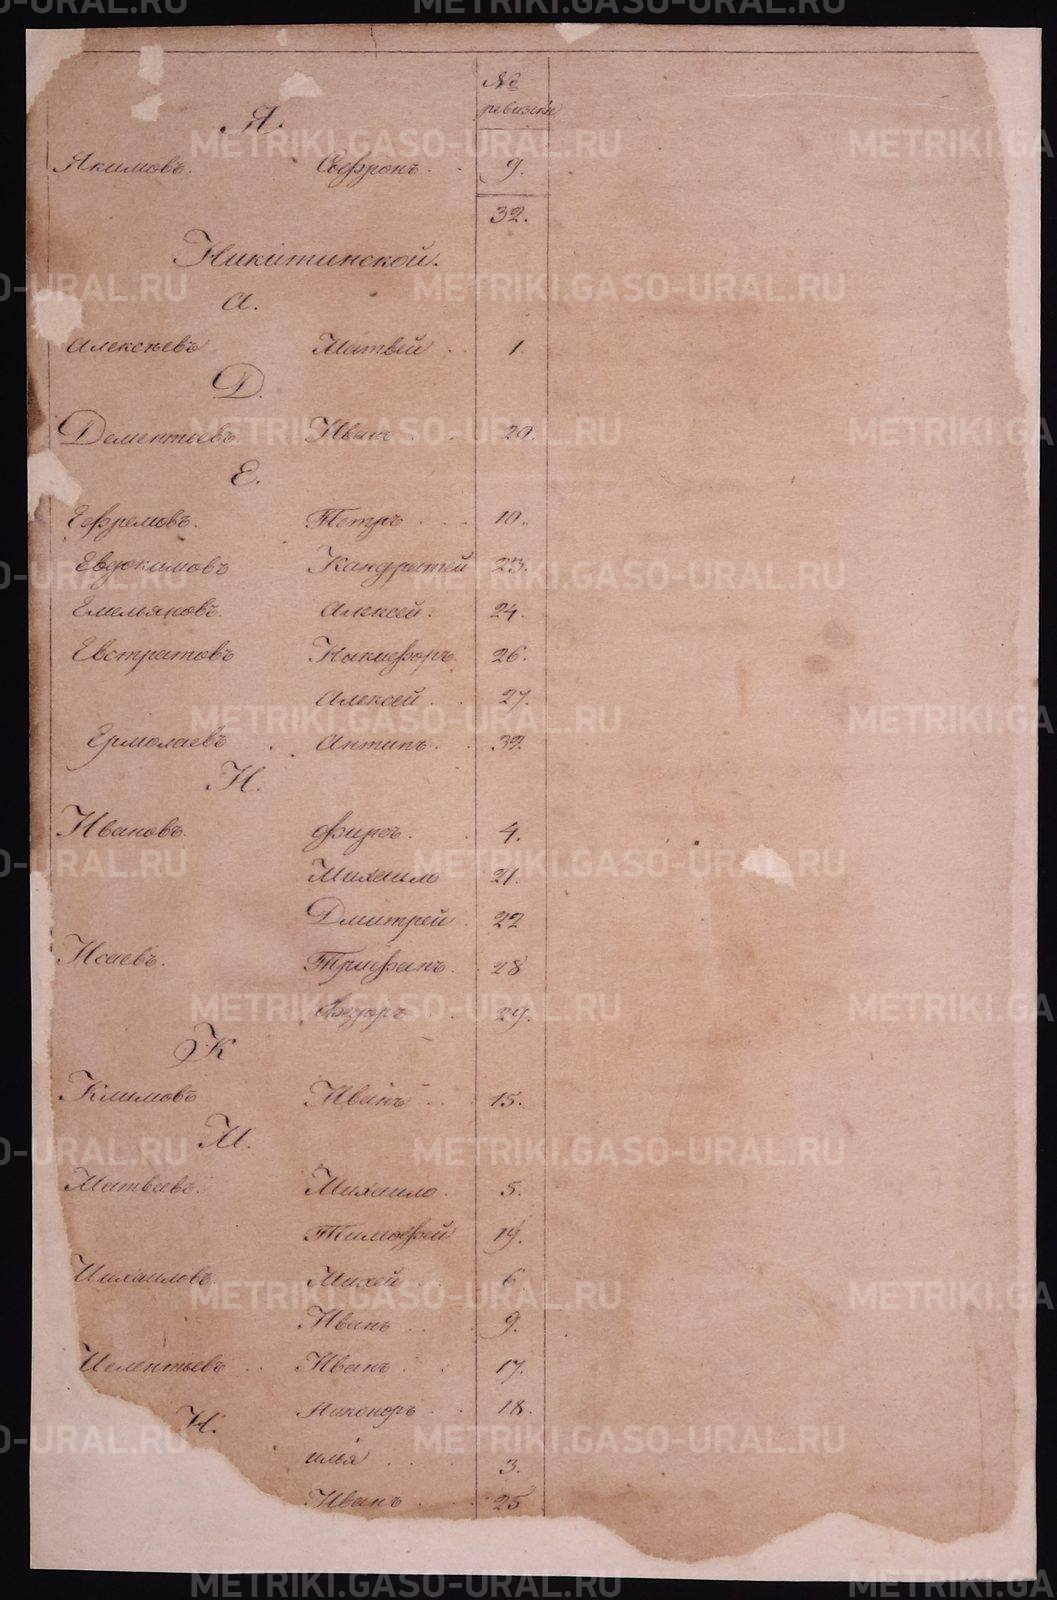 №
ревизск
Я.
Якимовъ. Софронъ. 9.
32.
Никитинской.
А.
Алексѣевъ Матвей 1.
Д.
Дементьевъ Иванъ 20.
Е.
Ефремовъ. Петръ 10.
Евдокимовъ Кандратей 23.
Емельяновъ. Алексей. 24.
Евстратовъ Никифоръ. 26.
Алексей 27.
Ермолаевъ Антипъ. 32.
И.
Ивановъ. Фирсъ. 4.
Михаило 21.
Дмитрей 22
Исаевъ. Трифанъ. 28
Федоръ 29.
К
Климовъ Иванъ 15.
М.
Матвеевъ. Михаило. 5.
Тимофей 19.
Михаиловъ. Михей 6
Иванъ 9.
Мелентьевъ Иванъ 17.
Никоноръ 18.
Н.
илья 3.
Иванъ 25
METRIKI.GASO-URAL.RU